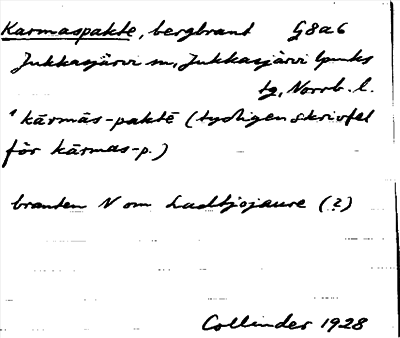 Karmaspakte, bergbrant G8a6
Jukkasjärvi sn, Jukkasjärvi lpmks
tg, Norrb. l.
kārmās-paktē (tydligen skrivfel
för kärmas-p.)
branten N om Ladtjojaure (?)
Collinder 1928